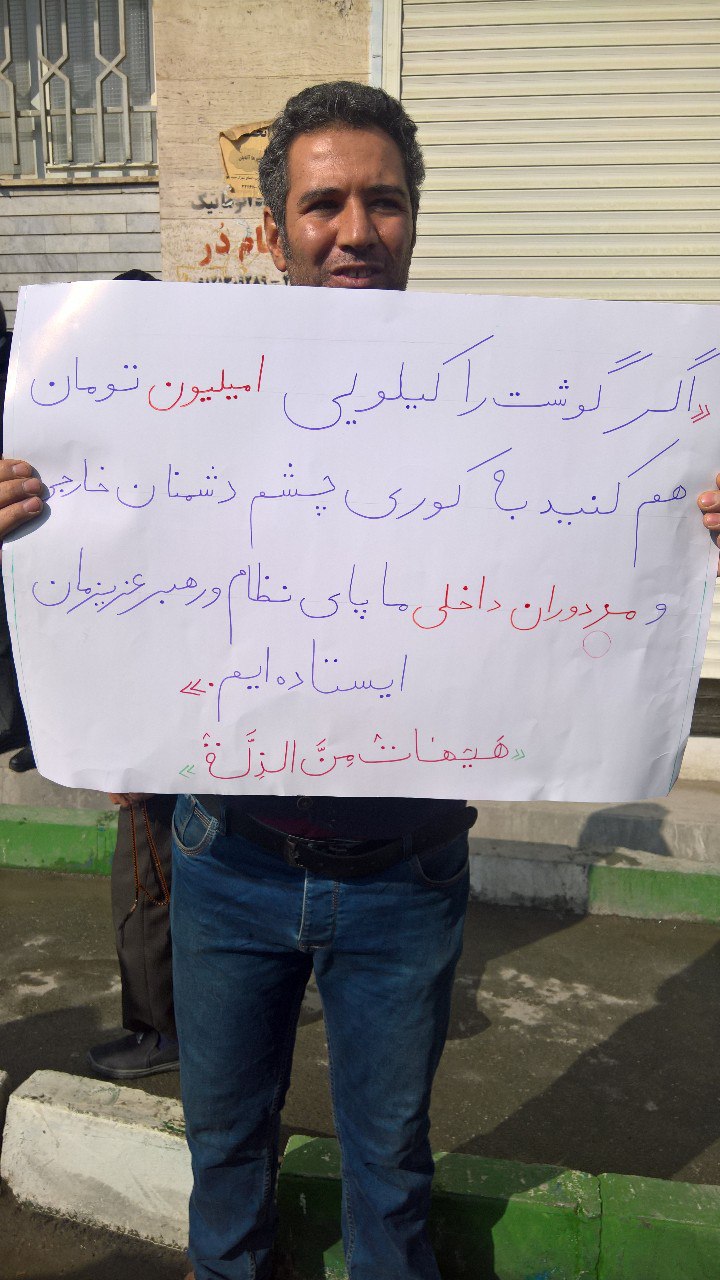 اتوماتیک
دُر
«اگر گوشت را کیلویی ۱میلیون تومان
هم کنید به کوری چشم دشمنان خارجی
و مزدوران داخلی ما پای نظام و رهبر عزیزمان
ایستاده ایم.»
«هَیهٰاتْ مِنَّ الذِلَّة»